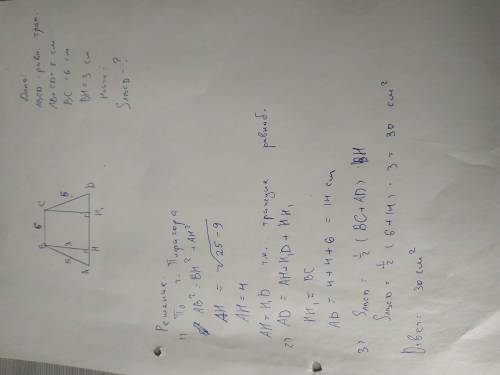 Дано:
ABCD равн. трап.
AB=CD=5 см
BC=6 см
BH=3 см
Найти:
SABCD=?
B 6 C
5 3 5
A H H₁ D
Решение:
1) По т. Пифагора
AB² = BH² + AH²
AH = √25-9
AH = 4
AH=H₁D т.к. трапеция равноб.
2) AD = AH+H₁D + HH₁
HH₁ = BC
AD = 4+4+6 = 14 см
3) SABCD = 1/2 (BC+AD) · BH
SABCD = 1/2 (6+14) · 3 = 30 см²
Ответ: 30 см²